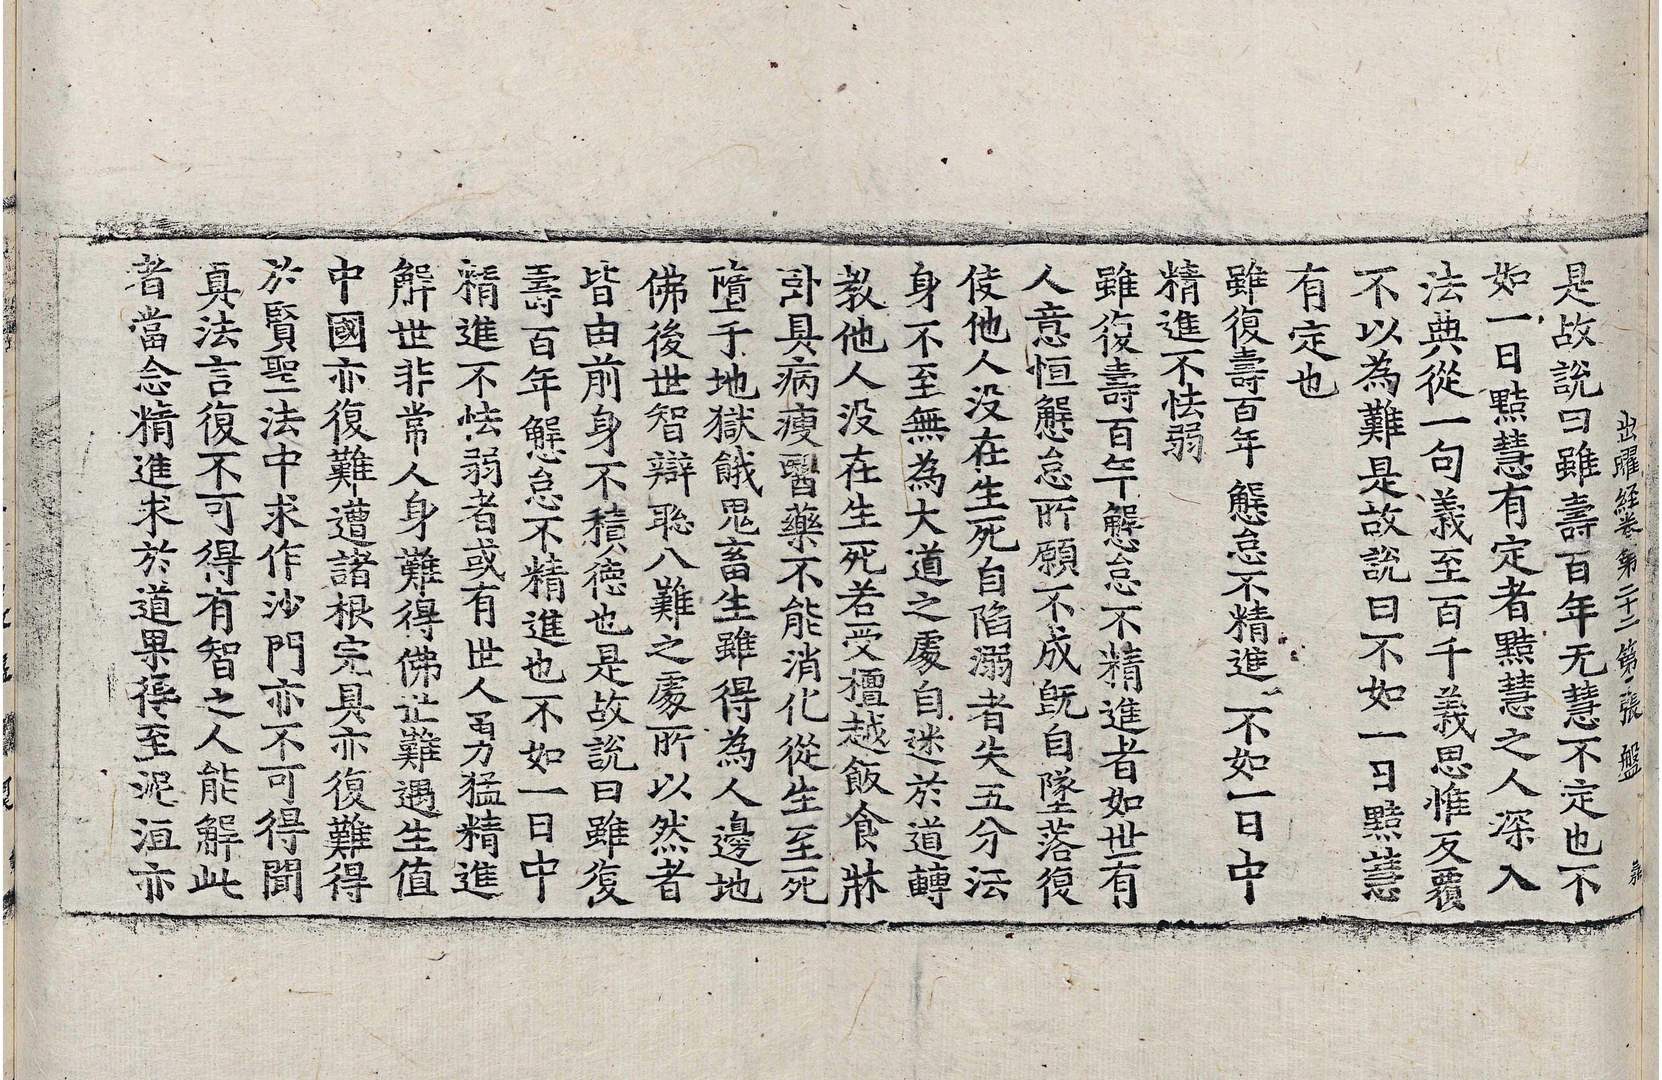 出曜経卷第二十二 第 張 盤
是故說曰雖壽百年无慧不定也不
如一日黠慧有定者黠慧之人深入
法典從一句義至百千義思惟反覆
不以為難是故說曰不如一日黠慧
有定也
雖復壽百年 懈怠不精進 不如一日中
精進不怯弱
雖復壽百年懈怠不精進者如世有
人意恒懈怠所願不成既自墜落復
使他人没在生死自陷溺者失五分法
身不至無為大道之處自迷於道轉
教他人没在生死若受檀越飯食牀
卧具病瘦醫藥不能消化從生至死
墮于地獄餓鬼畜生雖得為人邊地
佛後世智辯聡八難之處所以然者
皆由前身不積德也是故說曰雖復
壽百年懈怠不精進也不如一日中
精進不怯弱者或有世人勇猛精進
解世非常人身難得佛世難遇生值
中國亦復難遭諸根完具亦復難得
於賢聖法中求作沙門亦不可得聞
真法言復不可得有智之人能解此
者當念精進求於道果得至泥洹亦